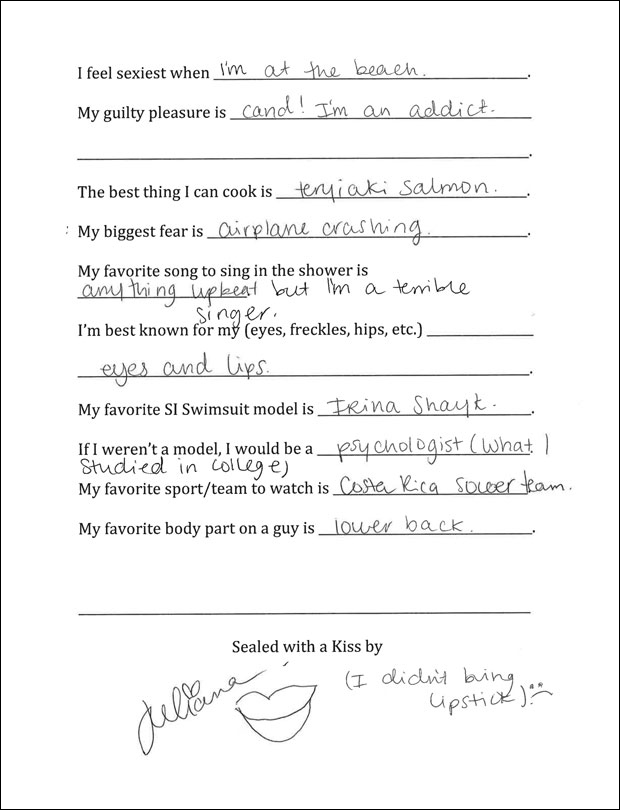 I feel sexiest when I'm at the beach.
My guilty pleasure is cand! I'm an addict.
The best thing I can cook is teryiaki salmon.
: My biggest fear is airplane crashing.
My favorite song to sing in the shower is
anything upbeat but I'm a terrible
singer.
I'm best known for my (eyes, freckles, hips, etc.)
eyes and lips.
My favorite SI Swimsuit model is Irina Shayk.
If I weren't a model, I would be a psychologist (what I
studied in college)
My favorite sport/team to watch is Costa Rica soccer team.
My favorite body part on a guy is lower back.
Sealed with a Kiss by
Juliana
(I didn't bring
lipstick) :(